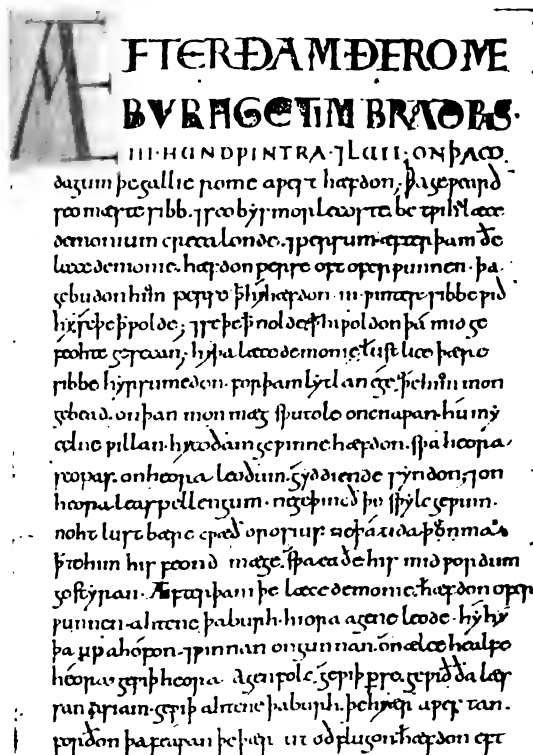 ÆFTER ÐAM ÐE ROME
BURH GETIMBRAD ǷÆS·
III·HUND ǷINTRA·⁊LUII; ON ÞÆM
dagum þe gallie rome aƿest hæfdon; þa geƿearð
seo mæste sibb·⁊seo bysmorlecoste·betƿih læce
demonium creca londe·⁊persum·æfter þam ðe
læcedemonie·hæfdon perse oft oferƿunnen· þa·
gebudon him perse ꝥ hy hæfdon ·iii· ƿinter sibbe ƿið
hy·se þe ꝥ ƿolde; ⁊se þe ꝥ nolde·ꝥ hi ƿoldon þa mid ge
feohte gesecan; hy þa læcedemonie·lustlice þære
sibbe hyrsumedon·for þam lytlan ege·þe him mon
gebead·on þan mon mæg sƿutole oncnaƿan·hu my
celne ƿillan·hy to ðam geƿinne hæfdon·sƿa heora
scopas·on heora leoðum·gyddiende syndon,⁊on
heora leasspellengum·ne geþincð þe sƿylc geƿinn·
noht lustbære cƿæð orosius·ne þa tida þe þon ma·
ꝥte him his feond mæge·sƿa eaðe his mid ƿordum
gestyran· Æfter þam þe læcedemonie·hæfdon ofer
ƿunnen·ahtene þa burh·hiora agene leode·hy hy
þa up ahofon·⁊ƿinnan ongunnan·on ælce healfe
heora·ge ƿiþ heora agen folc·ge ƿiþ perse·ge ƿið ða læs
san asiam·ge ƿiþ ahtene þa burh·þe hy ær aƿestan·
forðon þa feaƿan þe þær ut oðflugon·hæfdon eft